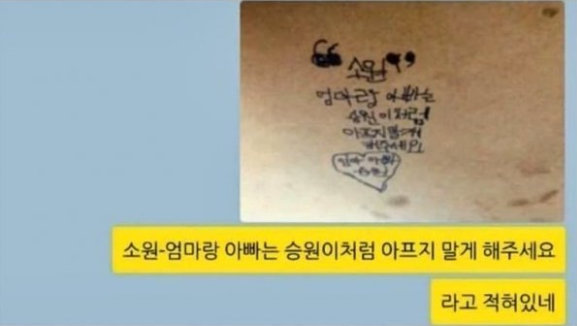 ❝소원❞
엄마랑 아빠는
승원이처럼
아프지말게
해주세요
엄마 아빠
소원-엄마랑 아빠는 승원이처럼 아프지 말게 해주세요
라고 적혀있네